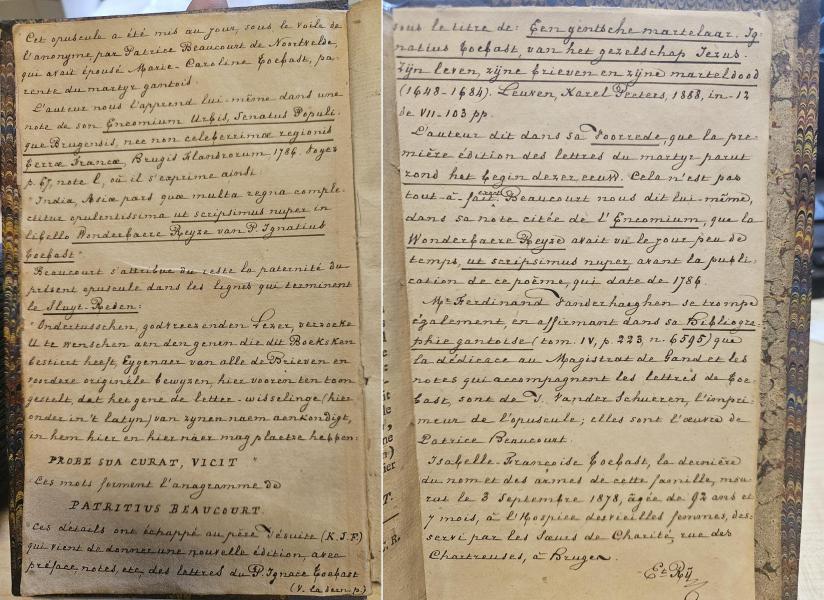 Cet opuscule a été mis au jour, sous le voile de
l'anonyme par Patrice Beaucourt de Noortvelde,
qui avait épousé Marie-Caroline Coebast, pa-
rente du martyr gantois.
L'auteur nous l'apprend lui-même dans une
note de son Encomium Urbis, Senatus Populi-
que Brugensis, nec non celeberrimæ regionis
Terræ Francæ, Brugis Flandrorum 1786. Voyez
p. 67, note l, où il s'exprime ainsi:
"India, Asiæ pars quæ multa regna comple-
ctitur opulentissima ut scripsimus nuper in
libello Wonderbaere Reyze van P. Ignatius
Coebast"
Beaucourt s'attribue du reste la paternité du
présent opuscule dans les lignes qui terminent
le Sluyt-Reden:
"Ondertusschen, godvreezenden Lezer, verzoeke
U te wenschen aen den genen die dit Boeksken
bestiert heeft, Eygenaer van alle de Brieven en
voordere originéle bewyzen, hier vooren ten toon
gestelt, dat het gene de letter-wisselinge (hier
onder in't latyn) van zynen naem aenkondigt,
in hem hier en hier naer mag plaetse hebben:
PROBE SUA CURAT, VICIT"
Ces mots forment l'anagramme de
PATRITIUS BEAUCOURT.
Ces détails ont échappé au père Jésuite (K.J.F.)
qui vient de donner une nouvelle édition, avec
préface, notes, etc, des lettres du P. Ignace Coebast
(V. la dern. p.)
sous le titre de: Een gentsche martelaar. Ig-
natius Coebast, van het gezelschap Jezus.
Zijn leven, zijne brieven en zijne marteldood
(1648-1684). Leuven, Karel Peeters, 1888, in-12
de VII-103 pp.
L'auteur dit dans sa Voorrede, que la pre-
mière édition des lettres du martyr parut
rond het begin dezer eeuw. Cela n'est pas
tout-à-fait exact. Beaucourt nous dit lui-même,
dans sa note citée de l'Encomium, que la
Wonderbaere Reyze avait vu le jour peu de
temps, ut scripsimus nuper avant la publi-
cation de ce poème, qui date de 1786.
Mr Ferdinand Vanderhaeghen se trompe
également, en affirmant dans sa Bibliogra-
phie gantoise (tom. IV, p. 223, n. 6595) que
la dédicace au Magistrat de Gand et les
notes qui accompagnent les lettres de Coe-
bast, sont de J. Vander Schueren, l'impri-
meur de l'opuscule; elles sont l'œuvre de
Patrice Beaucourt.
Isabelle-Françoise Coebast, la dernière
du nom et des armes de cette famille, mou-
rut le 3 Septembre 1878, âgée de 92 ans et
7 mois, à l'Hospice des vieilles femmes, des-
servi par les Sœurs de Charité, rue des
Chartreuses, à Bruges.